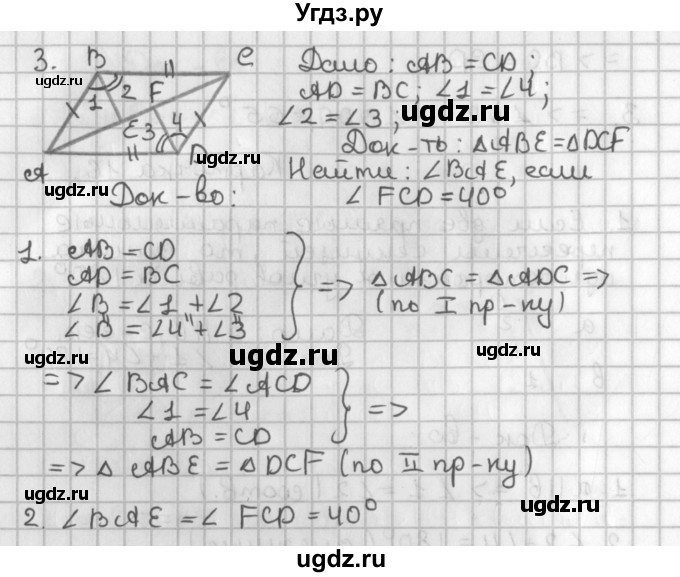 Угдз.ру
3. B C Дано: AB = CD;
1 2 F AD = BC; ∠1 = ∠4;
E 3 4 ∠2 = ∠3;
A D Док-ть: △ABE = △DCF
Найти: ∠BAE, если
Док-во: ∠ FCD = 40°
1. AB = CD
AD = BC => △ABC = △ADC =>
∠B = ∠1 + ∠2 (по I пр-ку)
∠B = ∠4 + ∠3
=> ∠ BAC = ∠ACD
∠1 = ∠4 =>
AB = CD
=> △ ABE = △ DCF (по II пр-ку)
2. ∠BAE = ∠ FCD = 40°
ugdz.ru
ugdz.ru
ugdz.ru
ugdz.ru
ugdz.ru
ugdz.ru
ugdz.ru
ugdz.ru
ugdz.ru
ugdz.ru
ugdz.ru
ugdz.ru
ugdz.ru